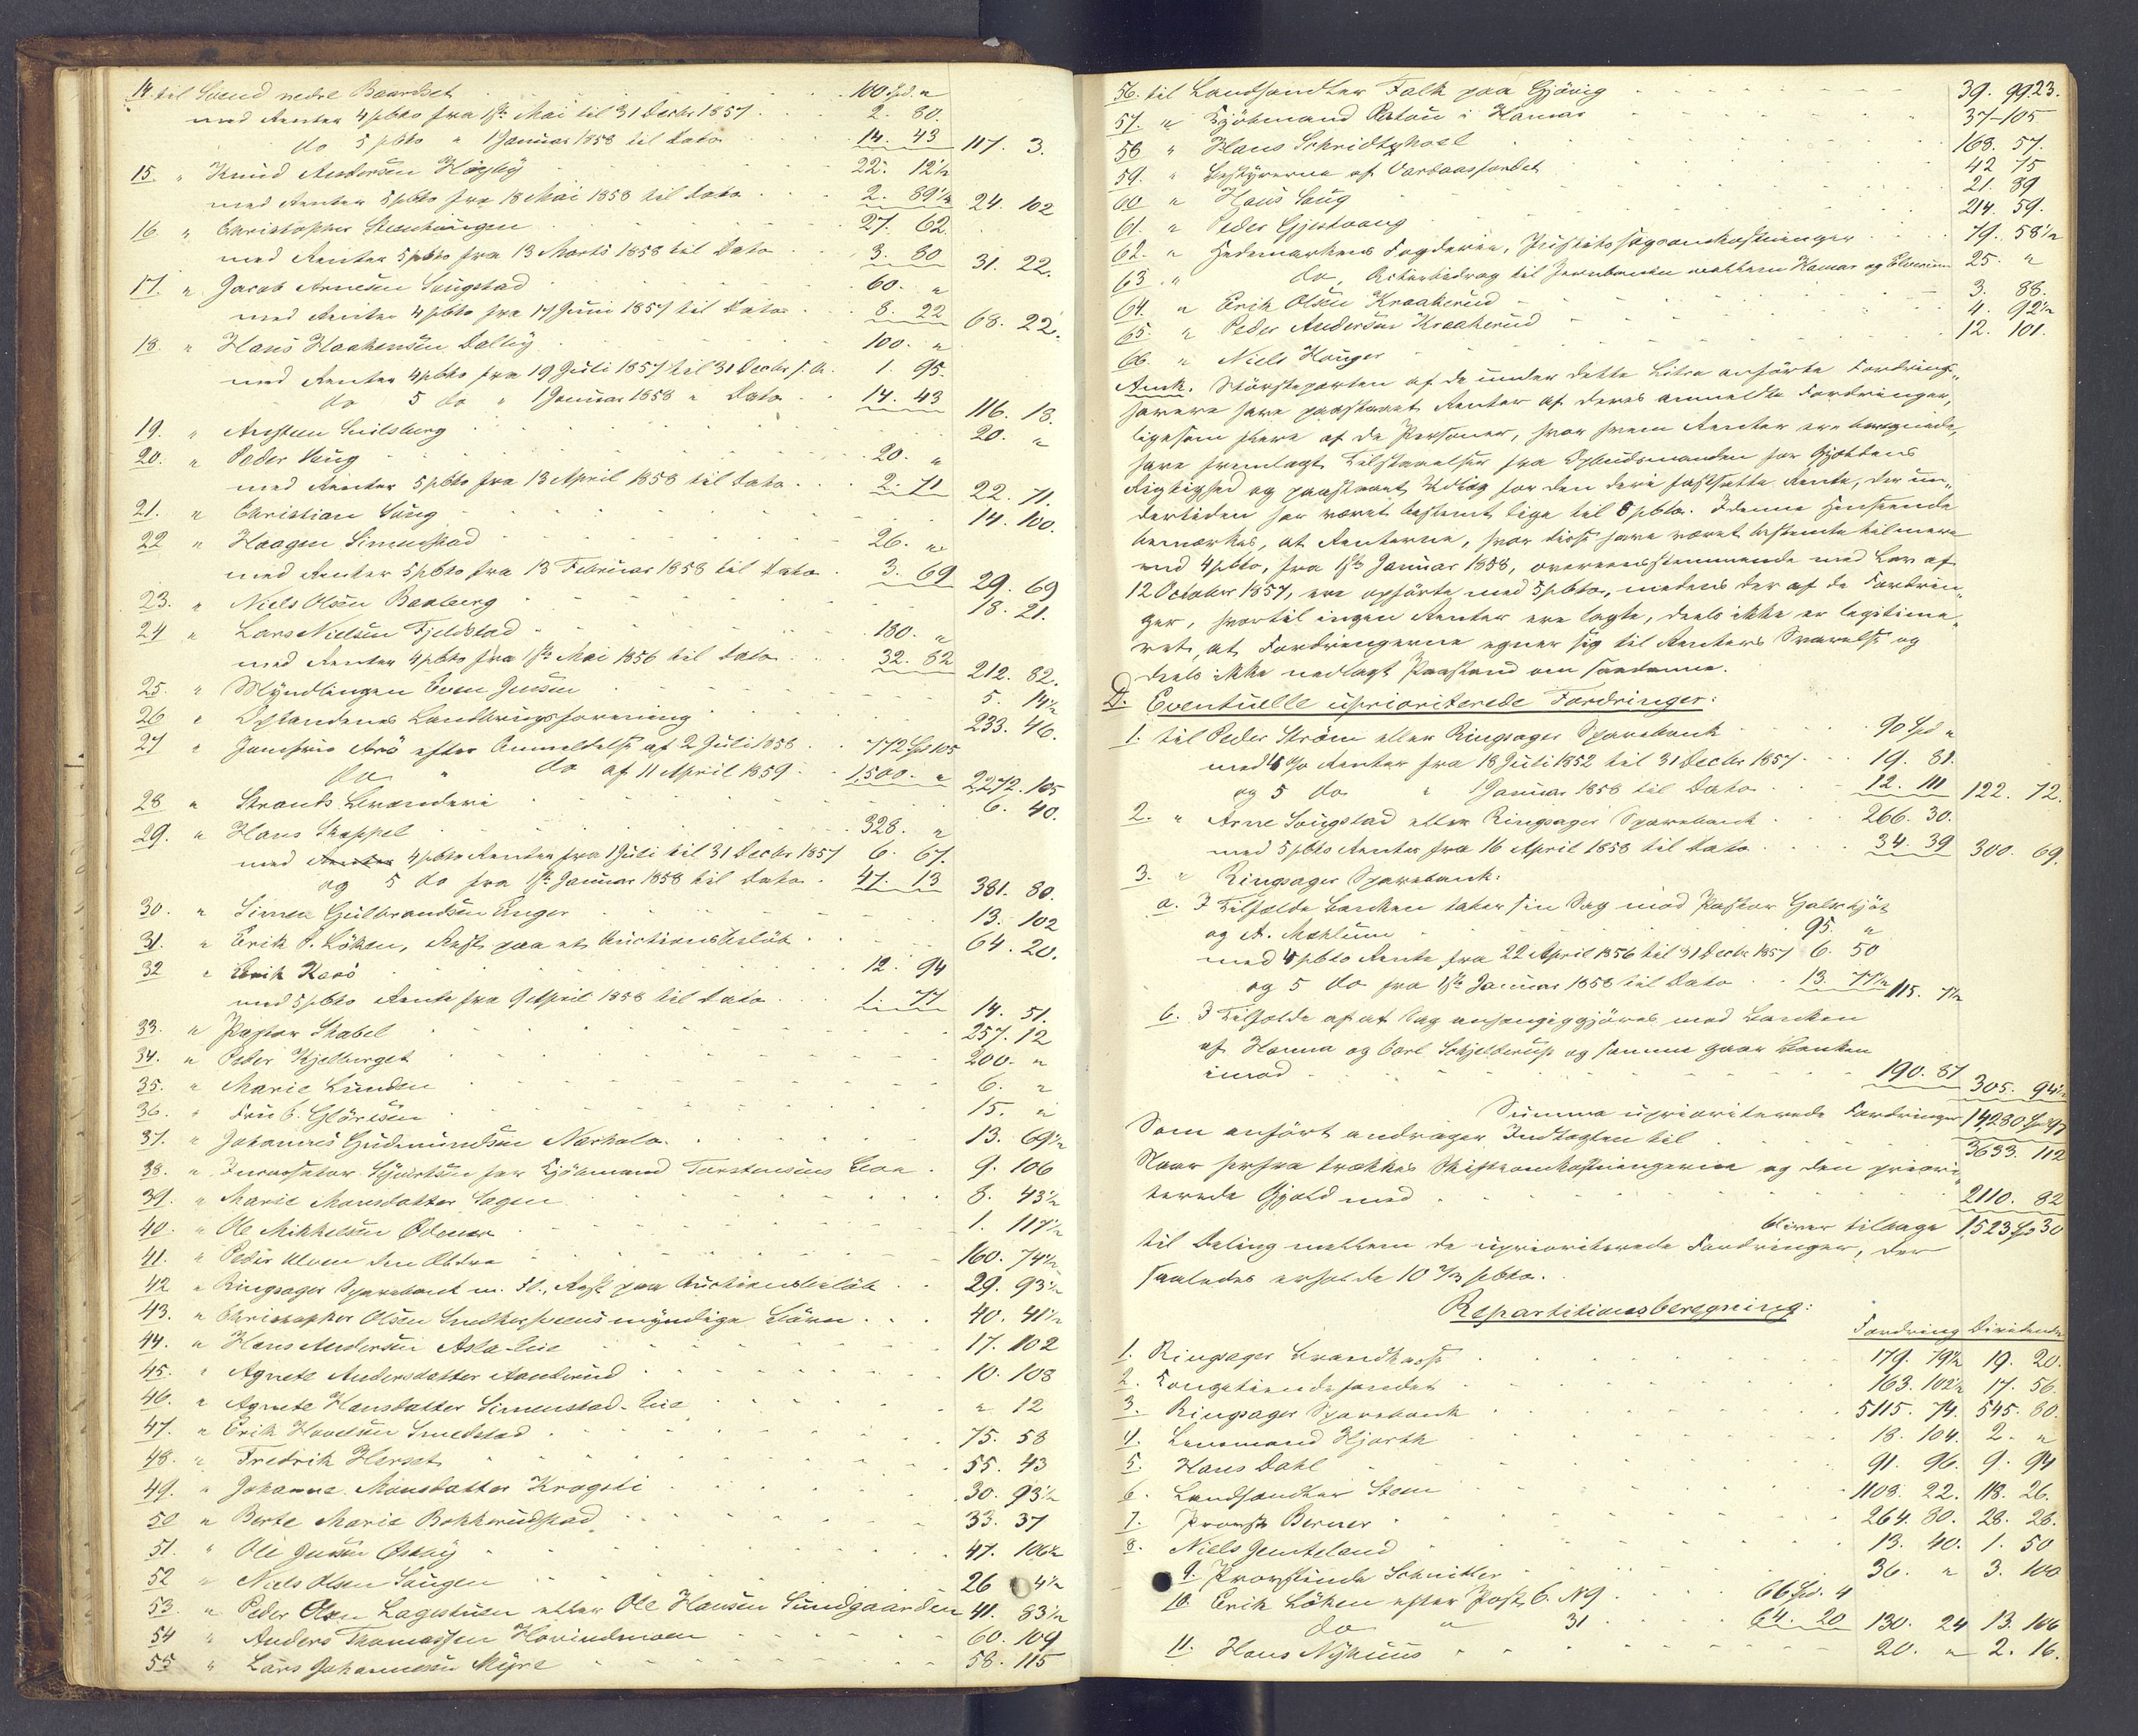 14. til Svend nedre Baardset 100 Spd. "
med Renter 4 pCto fra 1ste Mai til 31 Decbr 1857 2. 80.
do 5 pCto " 1 Januar 1858 til Dato 14. 43 117. 3.
15. " Knud Andersen Høgby 22. 12½
med Renter 5 pCto fra 18 Mai 1858 til Dato 2. 89½ 24. 102
16 " Christopher 27. 62.
med Renter 5 pCto fra 13 Marts 1858 til Dato 3. 80 31. 22.
17. " Jacob Arnesen Saugstad 60. "
med Renter 4 pCto fra 17 Juni 1857 til Dato 8. 22 68. 22.
18 " Hans Haakensen Dalby 100. "
med Renter 4 pCto fra 19 Juli 1857 til 31 Decbr s. A. 1. 95.
do 5 do " 1 Januar 1858 " Dato 14. 43 116. 18.
19. " Snilsberg 20. "
20. " Peder Haug 20. "
med Renter 5 pCto fra 13 April 1858 til Dato 2. 71 22. 71.
21. " Christian Saug 14. 100.
22 " Haagen Simenstad 26. "
med Renter 5 pCto fra 13 Februar 1858 til Dato 3. 69 29. 69
23. " Niels Olsen Baaberg 18. 21.
24 " Lars Nielsen Fjeldstad 180. "
med Renter 4 pCto fra 1ste Mai 1856 til Dato 32. 82 212. 82.
25. " Myndlingen Even Jensen 5. 14½
26 " Oplandenes Landbrugsforening 233. 46.
27 " Jomfru Arö efter Anmeldelse af 2 Juli 1858 772 Spd 105
do " do af 11 April 1859 1,500. " 2,272. 105
28 " Strands Brænderi 6. 40.
29. " Hans Skappel 328. "
med Renter 4 pCto Renter fra 1 Juli til 31 Decbr 1857 6. 67.
og 5 do fra 1ste Januar 1858 til Dato 47. 13 381. 80.
30. " Simen Gulbrandsen Enger 13. 102
31. " Erik P. Löken, Rest paa et Auctionsbeløb 64. 20.
32 " Erik Karö 12. 94
med 5 pCto Rente fra 9 April 1858 til Dato 1. 77 14. 51.
33. " Pastor Stabel 257. 12
34. " Peder Kjelberget 200. "
35. " Marie Lunden 6. "
36. " Fru C. Glörsen 15. "
37. " Johannes Gudmundsen Narhola 13. 69½
38. " Sjuertsen for Kjöbmand Torstensens Boe 9. 106
39. " Marie Monsdatter Sagen 8. 43½
40. " Ole Mikkelsen Odener 1. 117½
41. " Peder Ulven den Ældre 160. 74½
42 " Ringsager Sparebank m. Fl., Rest paa Auctionsbeløb 29. 93½
43. " Christopher Olsen umyndige Børn 40. 41½
44. " Hans Andersen Asla-Eie 17. 102
45. " Agnete Andersdatter Aanerud 10. 108
46. " Agnete Hansdatter Simenstad-Eie " 12
47. " Erik Hovelsen Smedstad 75. 58
48. " Fredrik Herset 55. 43
49. " Johanne Monsdatter Kragsti 30. 93½
50 " Berte Marie Bakkerudstad 33. 37
51. " Ole Jensen Ósthy 47. 106½
52 " Niels Olsen Saugen 26 4½
53. " Peder Olsen Lagestuen eller Ole Hansen Sundgaarden 41. 83½
54 " Anders Thomassen Hovindmoen 60. 109
55 " Lars Johannesen Myre 58. 115
56. til Landhandler Falk paa Gjövig 39. 9923.
57. " Kjöbmand Ratou i Hamar 37-105
58 " Hans Schmidtyhoel 168. 57.
59. " Bestyrerne af Vardaasfondet 42 75
60 " Hans Saug 21. 89
61. " Peder Gjestvang 214. 59.
62. " Hedemarkens Fogderie, Justitssagsomkostninger 79. 58½
63. " do, Actiebidrag til Jernbanen mellem Hamar og Elverum 25. "
64. " Erik Olsen Kraakerud 3. 88.
65. " Peder Andersen Kraakerud 4. 92½
66 " Niels Houger 12. 101.
Anm. Störsteparten af de under dette Litra anførte Fordrings-
havere have paastaaet Renter af deres anmeldte Fordringer,
ligesom flere af de Personer, hvor hvem Renter ere beregnede,
have fremlagt Tilstaaelser fra Opbudsmanden for Gjældens
Rigtighed og paastaaet Udlæg for den deri fastsatte Rente, der un-
dertiden har været bestemt lige til 8 pCto. I denne Henseende
bemærkes, at Renterne, hvor disse have været bestemte til mere
end 4 pCto, fra 1ste Januar 1858, overensstemmende med Lov af
12 October 1857, ere opførte med 5 pCto, medens der af de Fordrin-
ger, hvortil ingen Renter ere lagte, deels ikke er legitime-
ret, at Fordringerne egner sig til Renters Svarelse og
deels ikke nedlagt Paastand om saadanne.
D. Eventuelle uprioriterede Fordringer:
1. til Peder Ström eller Ringsager Sparebank 90 Spd "
med 4 % Renter fra 18 Juli 1852 til 31 Decbr 1857 19. 81.
og 5 do " 1 Januar 1858 til Dato 12. 111 122. 72.
2. " Arne Saugstad eller Ringsager Sparebank 266. 30.
med 5 pCto Renter fra 16 April 1858 til Dato 34. 39 300. 69.
3. " Ringsager Sparebank:
a. I Tilfælde Banken taber sin Sag mod Pastor Galskjöt
og A. Mæhlum 95. "
med 4 pCto Rente fra 22 April 1856 til 31 Decbr 1857 6. 50
og 5 do fra 1ste Januar 1858 til Dato 13. 77½ 115. 7½
b. I Tilfælde af at Sag anhængiggjöres mod Banken
af Hanna og Carl Schjelderup og samme gaar Banken
imod 190. 87 305. 94½
Summa uprioriterede Fordringer 14280 Spd 97
Som anført andrager Indtægten til 3633. 112
Naar herfra trækkes Skifteomkostningerne og den priori-
terede Gjæld med 2110. 82
bliver tilbage 1523 Spd 30
til Deling mellem de uprioriterede Fordringer, der
saaledes erholde 10 2/3 pCto.
Repartitionsberegning:
Fordring Dividende
1. Ringsager Brandkasse 179. 79½ 19. 20.
2. Kongetiendefondet 163. 102½ 17. 56.
3. Ringsager Sparebank 5115. 74. 545. 80.
4. Lensmand Hjorth 18. 104. 2. "
5. Hans Dahl 91. 96. 9. 94
6. Landhandler Steen 1108. 22. 118. 26.
7. Provst Berner 264. 80. 28. 28.
8. Niels Jemteland 13. 40. 1. 50
9. Provstinde Schnitler 36. " 3. 100
10. Erik Löken efter Post C. N 9 66 Spd. 4
do " 31 64. 20 130. 24 13. 106
11. Hans Nyhuus 20. " 2. 16.